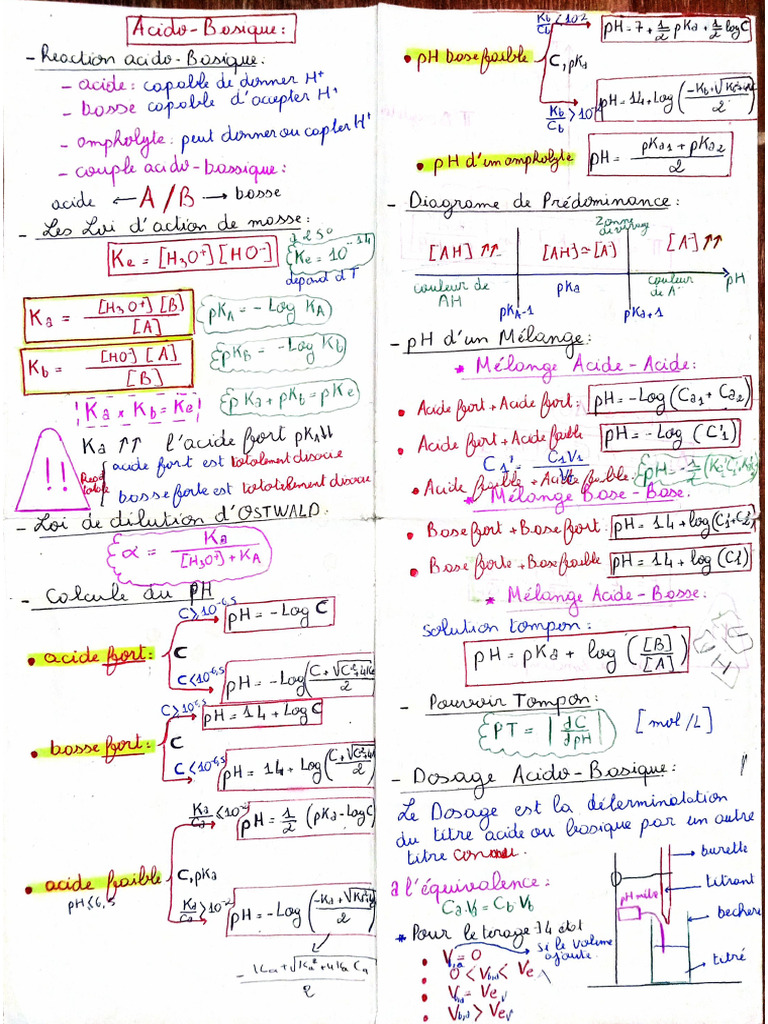 Acido-Basique:
- Reaction acido-Basique:
- acide: capable de donner H⁺
- basse capable d'accepter H⁺
- ampholyte: peut donner ou capter H⁺
- couple acido-bassique:
acide ← A / B → basse
- Les Loi d'action de masse:
Ke = [H₃O⁺] [HO⁻]
à 25°
Ke = 10⁻¹⁴
depand d T
Ka = [H₃O⁺] [B] / [A]
pKA = - Log KA
Kb = [HO⁻] [A] / [B]
pKB = - Log Kb
Ka × Kb = Ke
pKa + pKb = pKe
!!
Ka ↑↑ l'acide fort pKA↓↓
acide fort est totalement
basse forte est
- Loi de dilution d'OSTWALD:
α = Ka / [H₃O⁺] + KA
- Calcule du pH
• acide fort: C
C≥10⁻⁶·⁵ pH = - Log C
C≤10⁻⁶·⁵ pH = - Log(C + √C²+4Ke / 2
• basse fort: C
pH = 14 + Log C
C≤10⁻⁶·⁵ pH = 14 + Log(C + √C²+4 / 2
• acide faible C, pKa
pH ≤ 6,5
Ka/Ca ≤ 10⁻² pH = 1/2 (pKa - Log C
Ka/Ca > 10⁻² pH = - Log(-Ka + √Ka² / 2)
- Ka + √Ka² + 4Ka Ca / 2
• pH base faible C, pKa
Kb/Cb < 10⁻² pH = 7 + 1/2 pKa + 1/2 log C
Kb/Cb > 10⁻² pH = 14 + Log(-Kb + √ / 2)
• pH d'un ampholyte pH = pKa1 + pKa2 / 2
- Diagrame de Prédominance:
Zonne de virage
[AH] ↑↑ [AH] ≃ [A⁻] [A⁻] ↑↑
couleur de AH pKa couleur de A⁻ pH
pKa-1 pKa+1
- pH d'un Mélange:
* Mélange Acide-Acide:
• Acide fort + Acide fort: pH = - Log (Ca1 + Ca2)
• Acide fort + Acide faible pH = - Log (C'1)
C1' = C1V1 / Vt
• Acide faible + Acide faible: pH = -1/2
* Mélange Base-Base:
• Base fort + Base fort: pH = 14 + log(C'1 + C'2)
• Base forte + Base faible pH = 14 + log (C1)
* Mélange Acide-Basse:
solution tompon:
pH = pKa + log ([B] / [A])
- Pouvoir Tompon:
PT = | dC / dpH | [mol/L]
- Dosage Acido-Basique:
Le Dosage est la
du titre acide ou basique par un autre
titre connu.
à l'équivalence:
Ca.Va = Cb.Vb
* Pour le 4 état
si le volume
ajouté.
• V = 0
• 0 < Vb,a < Ve
• Vb,a = Ve
• Vb,a > Ve
burette
titrant
pH mètre
bechere
titré